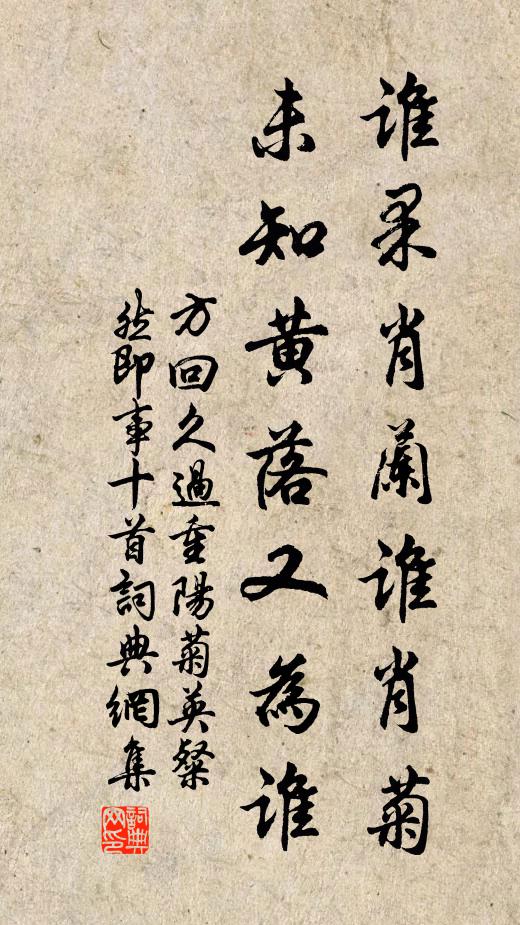 谁果肖蘭谁肖菊
未知黄落又為谁
方回久過重陽菊英粲
然即事十首詞典網集
詞典網印